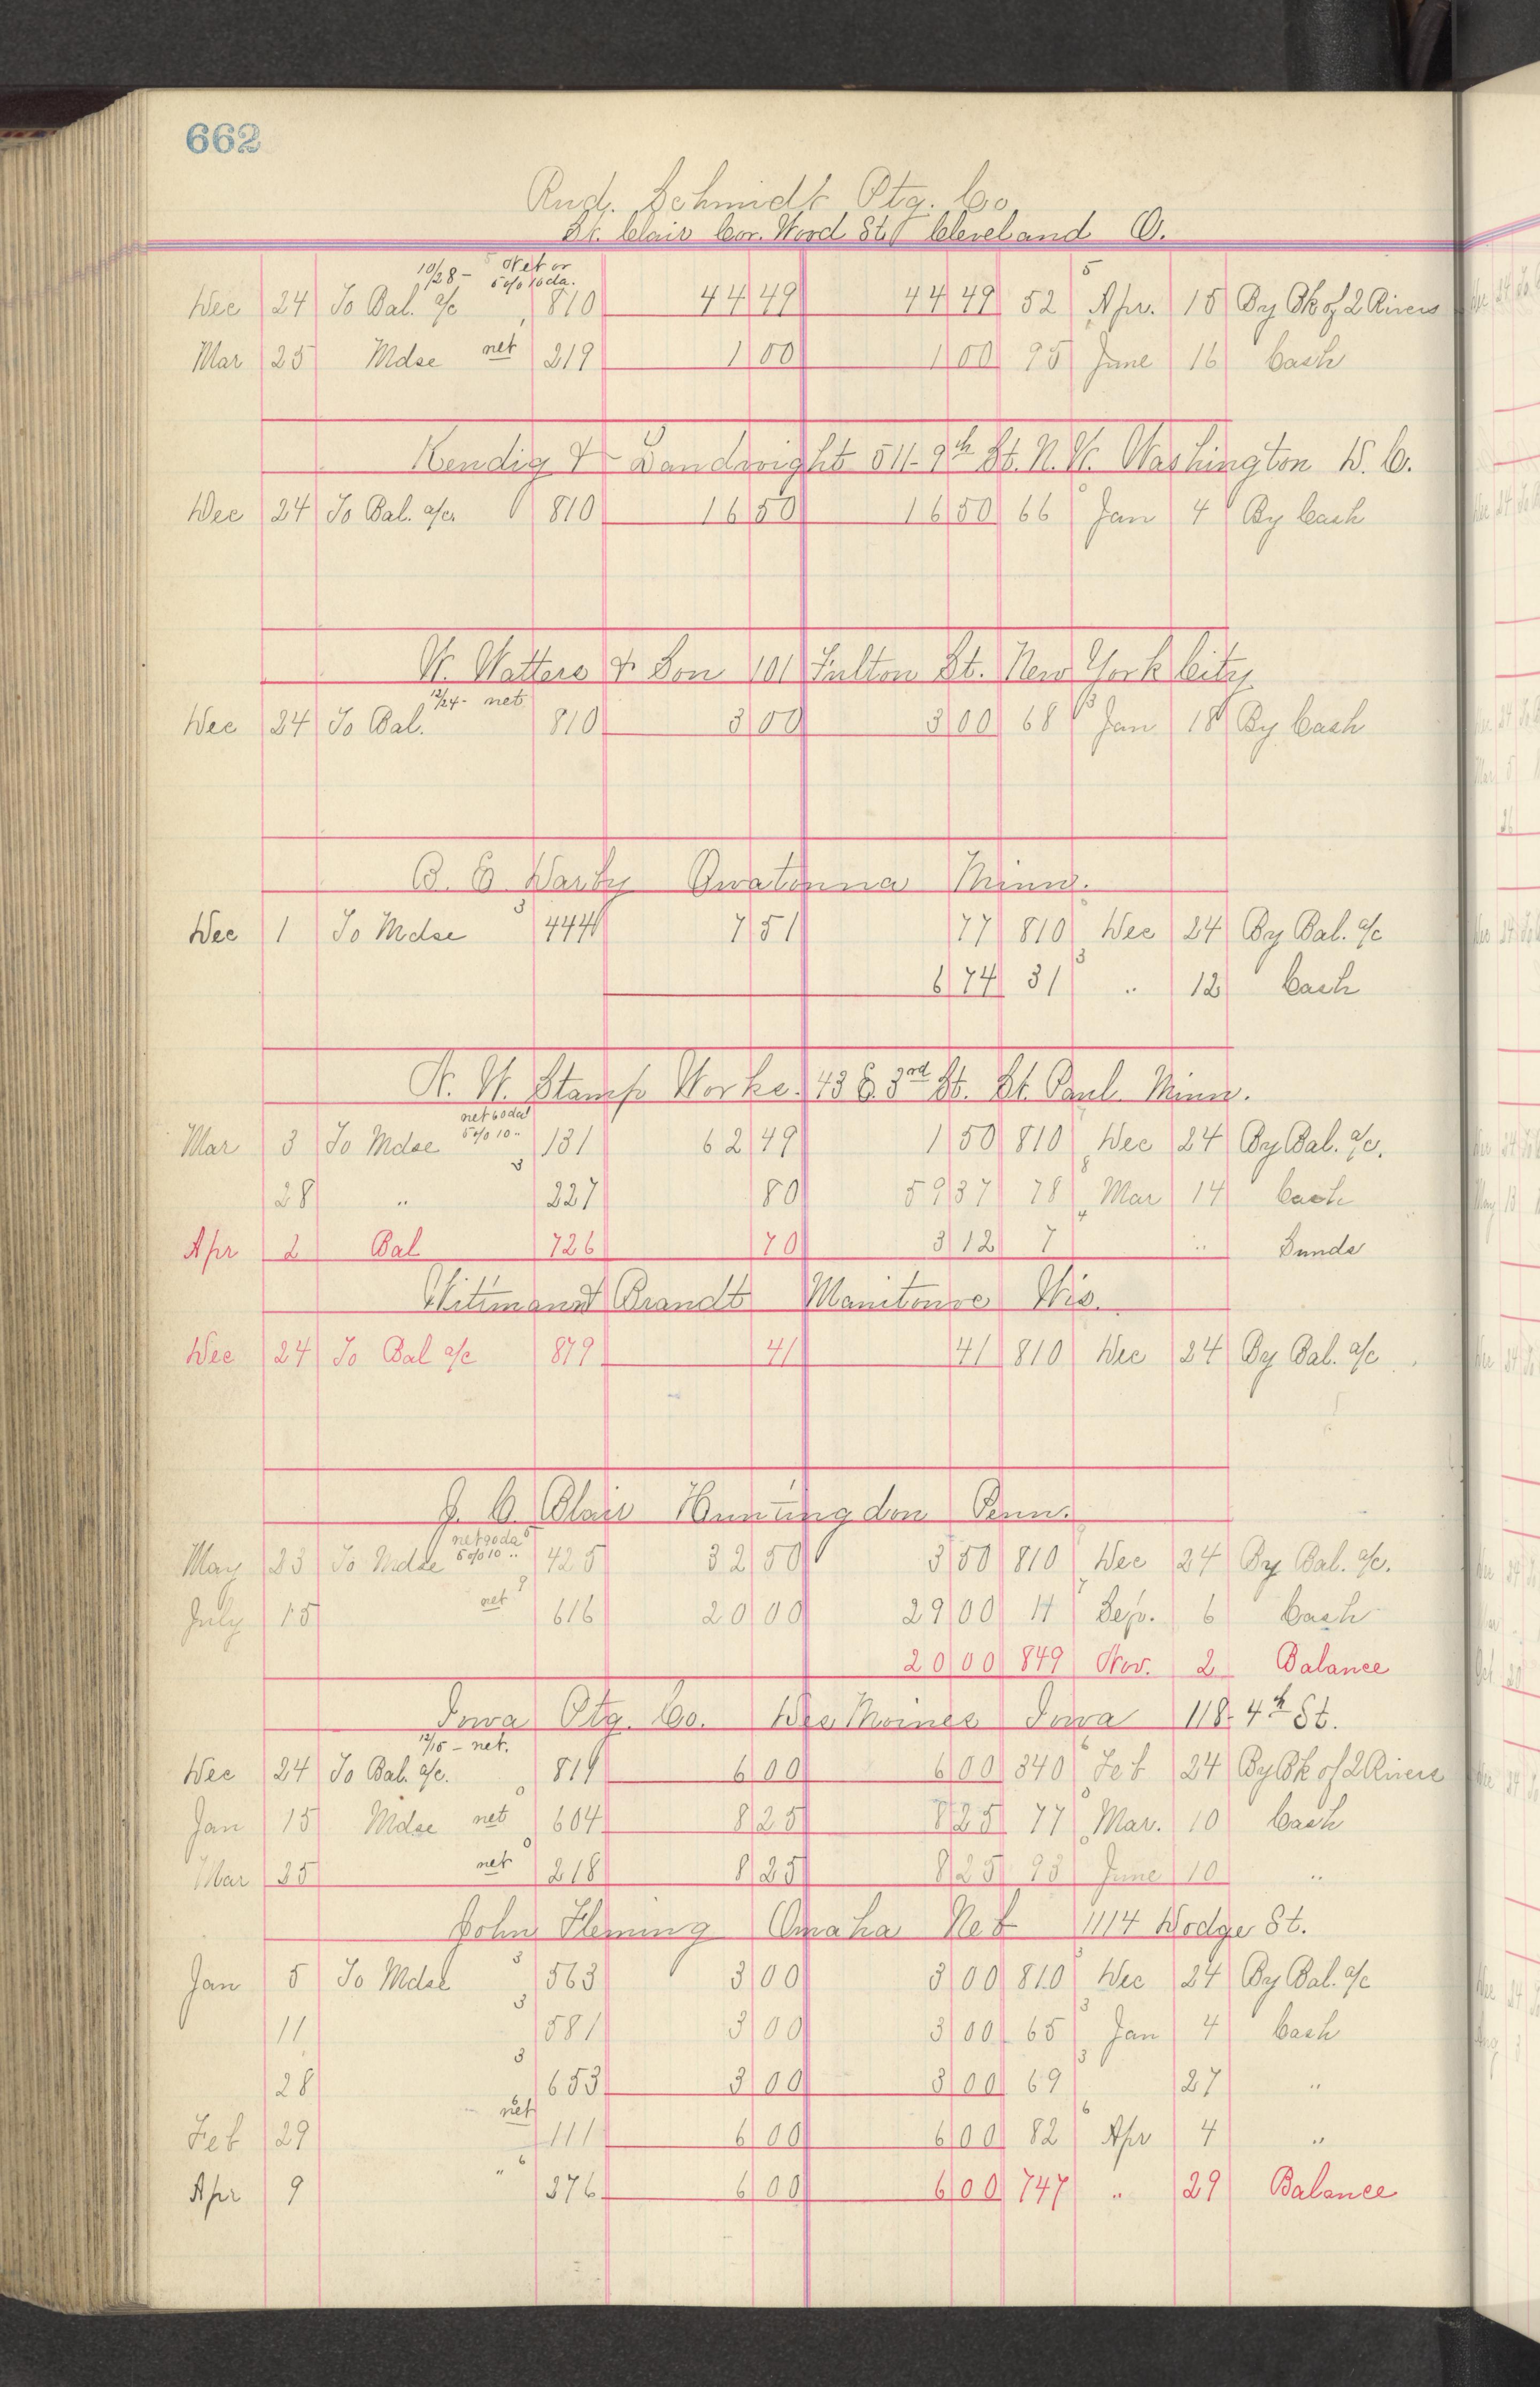 662
Rud. Schmidt Ptg. Co.
St. Clair Cor. Wood St. Cleveland O.
10/28 - Net or 5 5
5% 10 da.
Dec 24 To Bal. a/c 810 44 49 44 49 52 Apr. 15 By Bk of 2 Rivers
Mar 25 Mdse net 219 1 00 1 00 95 June 16 Cash
Kendig & Landwight 511-9th St. N.W. Washington D.C.
Dec 24 To Bal. a/c. 810 16 50 16 50 66 Jan 4 By Cash
W. Watters & Son 101 Fulton St. New York City
12/24 - net 3
Dec 24 To Bal. 810 3 00 3 00 68 Jan 18 By Cash
B. E. Darby Owatonna Minn.
Dec 1 To Mdse 3 444 7 51 77 810 Dec 24 By Bal. a/c
6 74 31 3 .. 12 Cash
N. W. Stamp Works. 43 E. 3rd St. St. Paul Minn.
net 60 da
5% 10 ..
Mar 3 To Mdse 131 62 49 1 50 810 Dec 24 By Bal. a/c.
28 .. 3 227 80 59 37 78 8 Mar 14 Cash
Apr 2 Bal 726 70 3 12 7 4 .. Sunds
Brandt Manitowoc Wis.
Dec 24 To Bal a/c 879 41 41 810 Dec 24 By Bal. a/c
J. C. Blair Huntingdon Penn.
net 90 da
5% 10 ..
May 23 To Mdse 425 32 50 3 50 810 Dec 24 By Bal. a/c.
July 15 net 9 616 20 00 29 00 11 7 Sep. 6 Cash
20 00 849 Nov. 2 Balance
Iowa Ptg. Co. Des Moines Iowa 118-4th St.
12/15 - net. 6
Dec 24 To Bal. a/c. 819 6 00 6 00 340 Feb 24 By Bk of 2 Rivers
Jan 15 Mdse net 0 604 8 25 8 25 77 Mar. 10 Cash
Mar 25 net 0 218 8 25 8 25 93 June 10 ..
John Fleming Omaha Neb 1114 Dodge St.
Jan 5 To Mdse 3 563 3 00 3 00 810 3 Dec 24 By Bal. a/c
11 3 581 3 00 3 00 65 3 Jan 4 Cash
28 3 653 3 00 3 00 69 3 27 "
Feb 29 net 6 111 6 00 6 00 82 6 Apr 4 "
Apr 9 " 6 376 6 00 6 00 747 .. 29 Balance